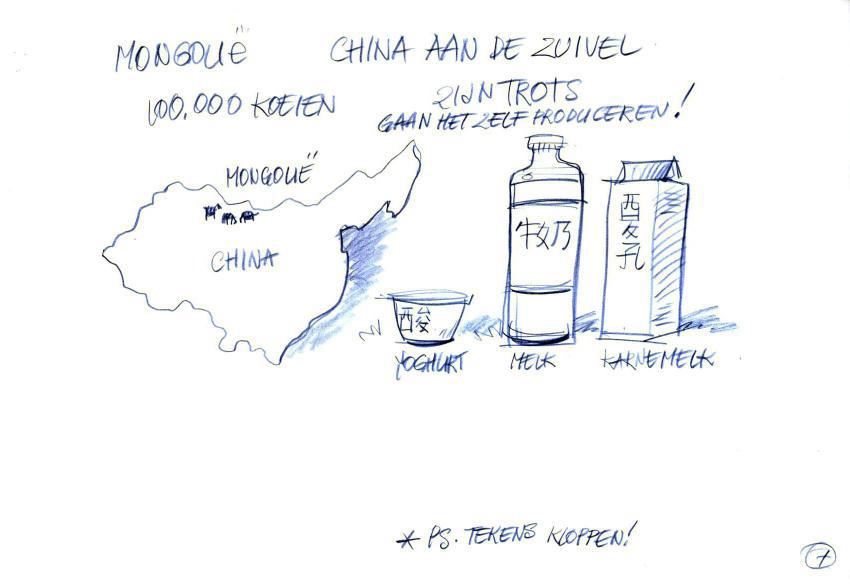 MONGOLIË
CHINA AAN DE ZUIVEL
100.000 KOEIEN
ZIJN TROTS
GAAN HET ZELF PRODUCEREN!
MONGOLIË
CHINA
牛奶
酸
YOGHURT
MELK
KARNEMELK
* PS. TEKENS KLOPPEN!
7